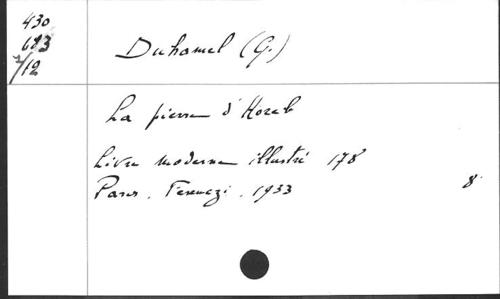 430
693
7/12
Duhamel (G.)
La pierre d'Horeb
Livre moderne illustré 178
Paris. Ferenczi. 1933
8°